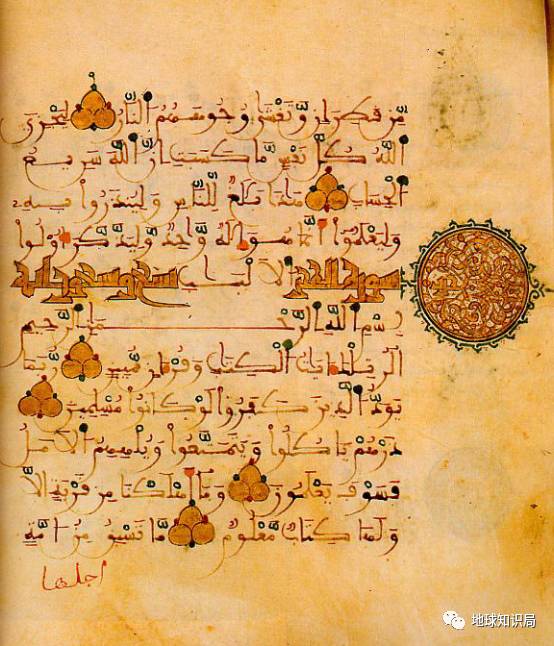 مِّن قَطِرَانٍ وَّتَغْشَىٰ وُجُوهَهُمُ النَّارُ لِيَجْزِيَ
اللَّهُ كُلَّ نَفْسٍ مَّا كَسَبَتْ إِنَّ اللَّهَ سَرِيعُ
الْحِسَابِ هَٰذَا بَلَٰغٌ لِّلنَّاسِ وَلِيُنذَرُوا بِهِ
وَلِيَعْلَمُوا أَنَّمَا هُوَ إِلَٰهٌ وَّاحِدٌ وَّلِيَذَّكَّرَ أُوْلُوا
سورة الحجر الْأَلْبَٰبِ تسع وتسعون اية
بِسْمِ اللَّهِ الرَّحْمَٰنِ الرَّحِيمِ
الٓر تِلْكَ ءَايَٰتُ الْكِتَٰبِ وَقُرْءَانٍ مُّبِينٍ رُّبَمَا
يَوَدُّ الَّذِينَ كَفَرُوا لَوْ كَانُوا مُسْلِمِينَ
ذَرْهُمْ يَأْكُلُوا وَيَتَمَتَّعُوا وَيُلْهِهِمُ الْأَمَلُ
فَسَوْفَ يَعْلَمُونَ وَمَا أَهْلَكْنَا مِن قَرْيَةٍ إِلَّا
وَلَهَا كِتَابٌ مَّعْلُومٌ مَّا تَسْبِقُ مِنْ أُمَّةٍ
اجلها
地球知识局